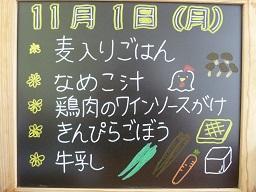 11月1日(月)
麦入りごはん
なめこ汁
鶏肉のワインソースがけ
きんぴらごぼう
牛乳